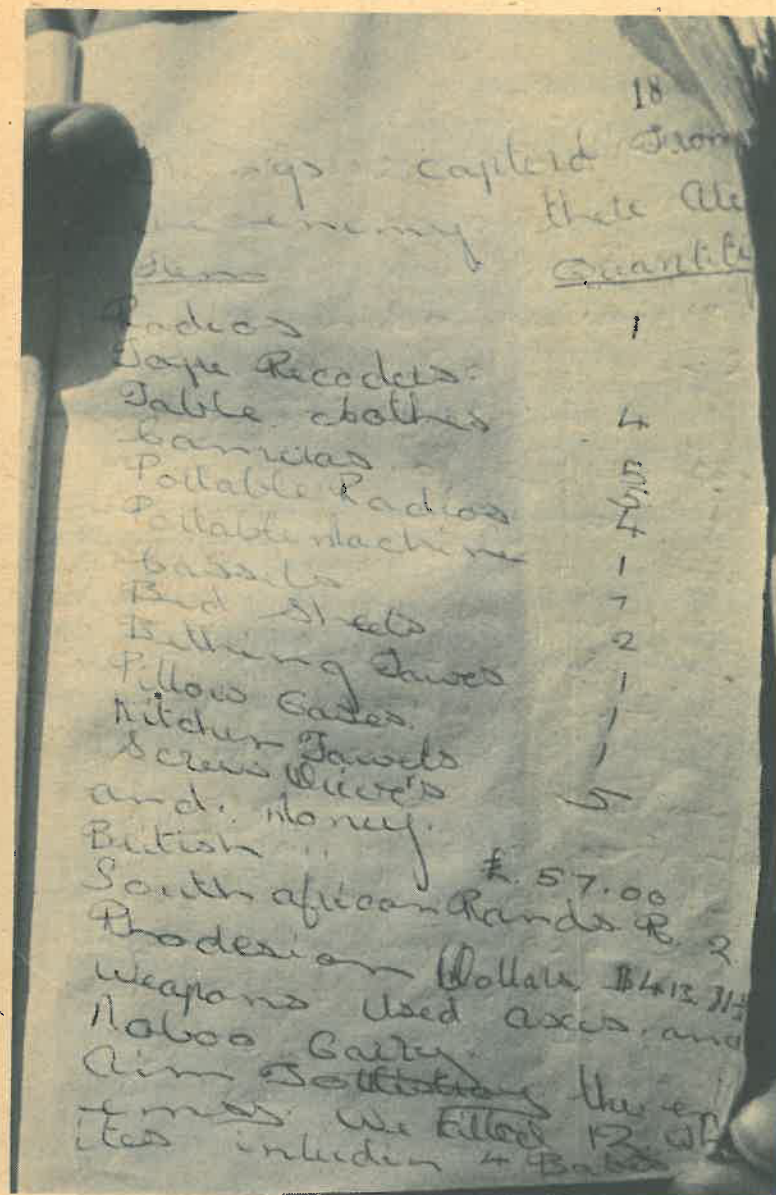 18
capterd From
enemy thete are
Item Quantity
Radios 1
Tape Recoders
Table clothes 4
Camras 5
Pottable Radios 5
Pottable Machine 4
Cassets 1
Bed Sheets 7
Bathing Tawes 2
Pillow Cases 1
Kitchen Tawels 1
Screw Driver's 1
and Money. 5
British £ 57.00
South african Rands R 2
Rhodesian Dollars
Weapons used axes and
Aim the en
emes. We killed 12 wh
ites includin 4 Babes